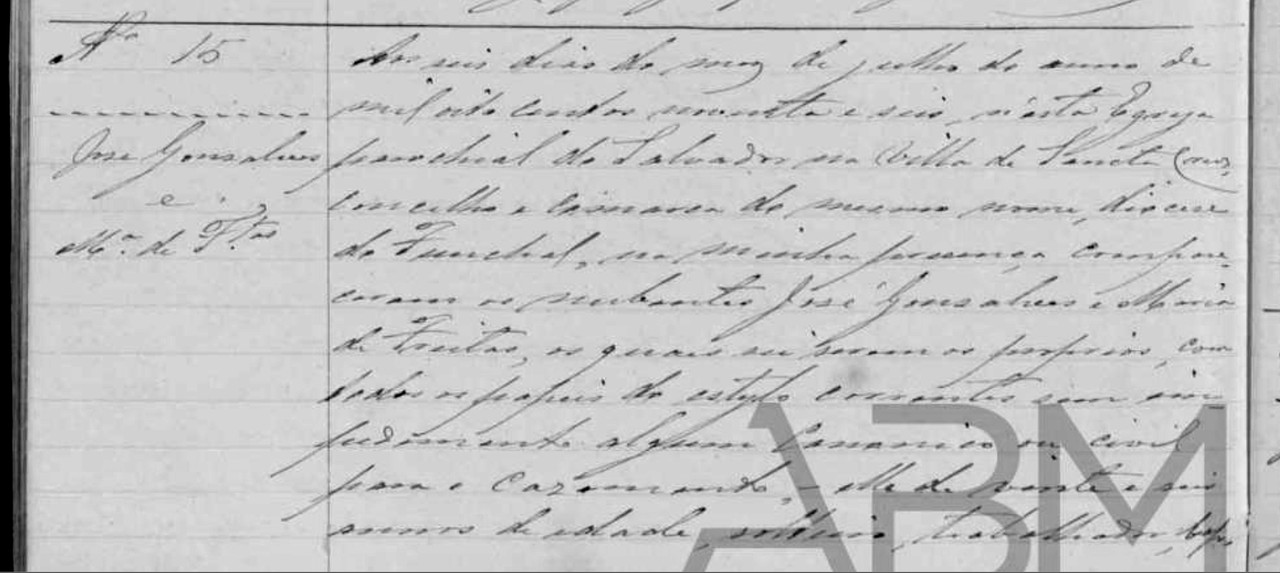 Nº 15
José Gonsalves
e
Mª. de F.tas
Aos seis dias do mez de julho do anno de
mil oito centos noventa e seis, n'esta Egreja
parochial do Salvador na Villa de Sancta Cruz,
concelho e comarca do mesmo nome, diocese
do Funchal, na minha presença compare-
ceram os nubentes José Gonsalves e Maria
de Freitas, os quaes sei serem os proprios, com
todos os papeis do estylo correntes sem im
pedimento algum canonico ou civil
para o cazamento, - elle de vinte e seis
annos de edade, solteiro, trabalhador,
ABM